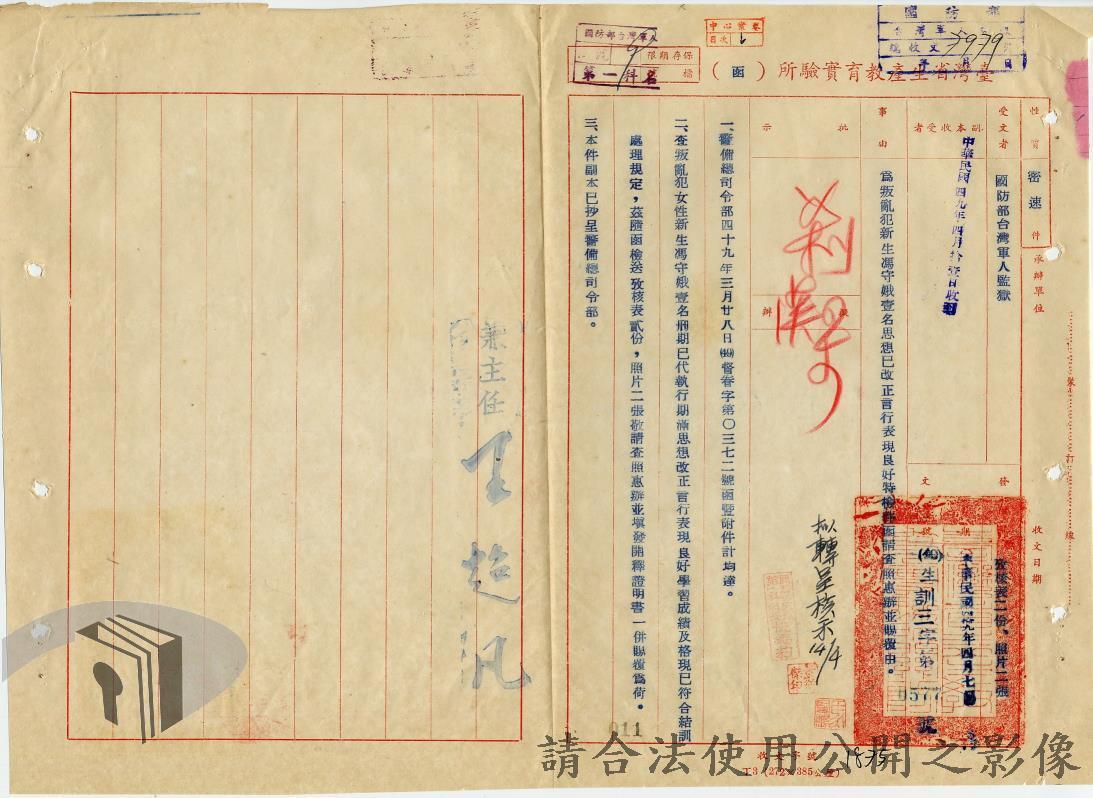 國防部
台灣軍
總收文 5979
年 月 日
中心案卷
目次
國防部台灣軍人
保存期限
檔
第一科
臺灣省生產教育實驗所（函）
性質 密速件
承辦單位
受文者 國防部台灣軍人監獄
副本收受者
中華民國四九年四月拾壹日收
收文日期
裝 訂 線
發文
攷核表二份、照片二張
中華民國四九年四月七日
(49)生訓三字第 0577 號
事由 為叛亂犯新生馮守娥壹名思想已改正言行表現良好特檢群函請查照惠辦並賜覆由。
批示
擬辦
擬轉呈核示 14/4
一、警備總司令部四十九年三月廿八日(49)督眷字第〇三七二號函暨附件計均達。
二、查叛亂犯女性新生馮守娥壹名刑期已代執行期滿思想改正言行表現良好學習成績及格現已符合結訓
處理規定，茲隨函檢送攷核表貳份，照片二張敬請查照惠辦並填發開釋證明書一併賜覆為荷。
三、本件副本已抄呈警備總司令部。
兼主任 王超凡
011
收文字號 1875
T3 (272×385公厘)
請合法使用公開之影像